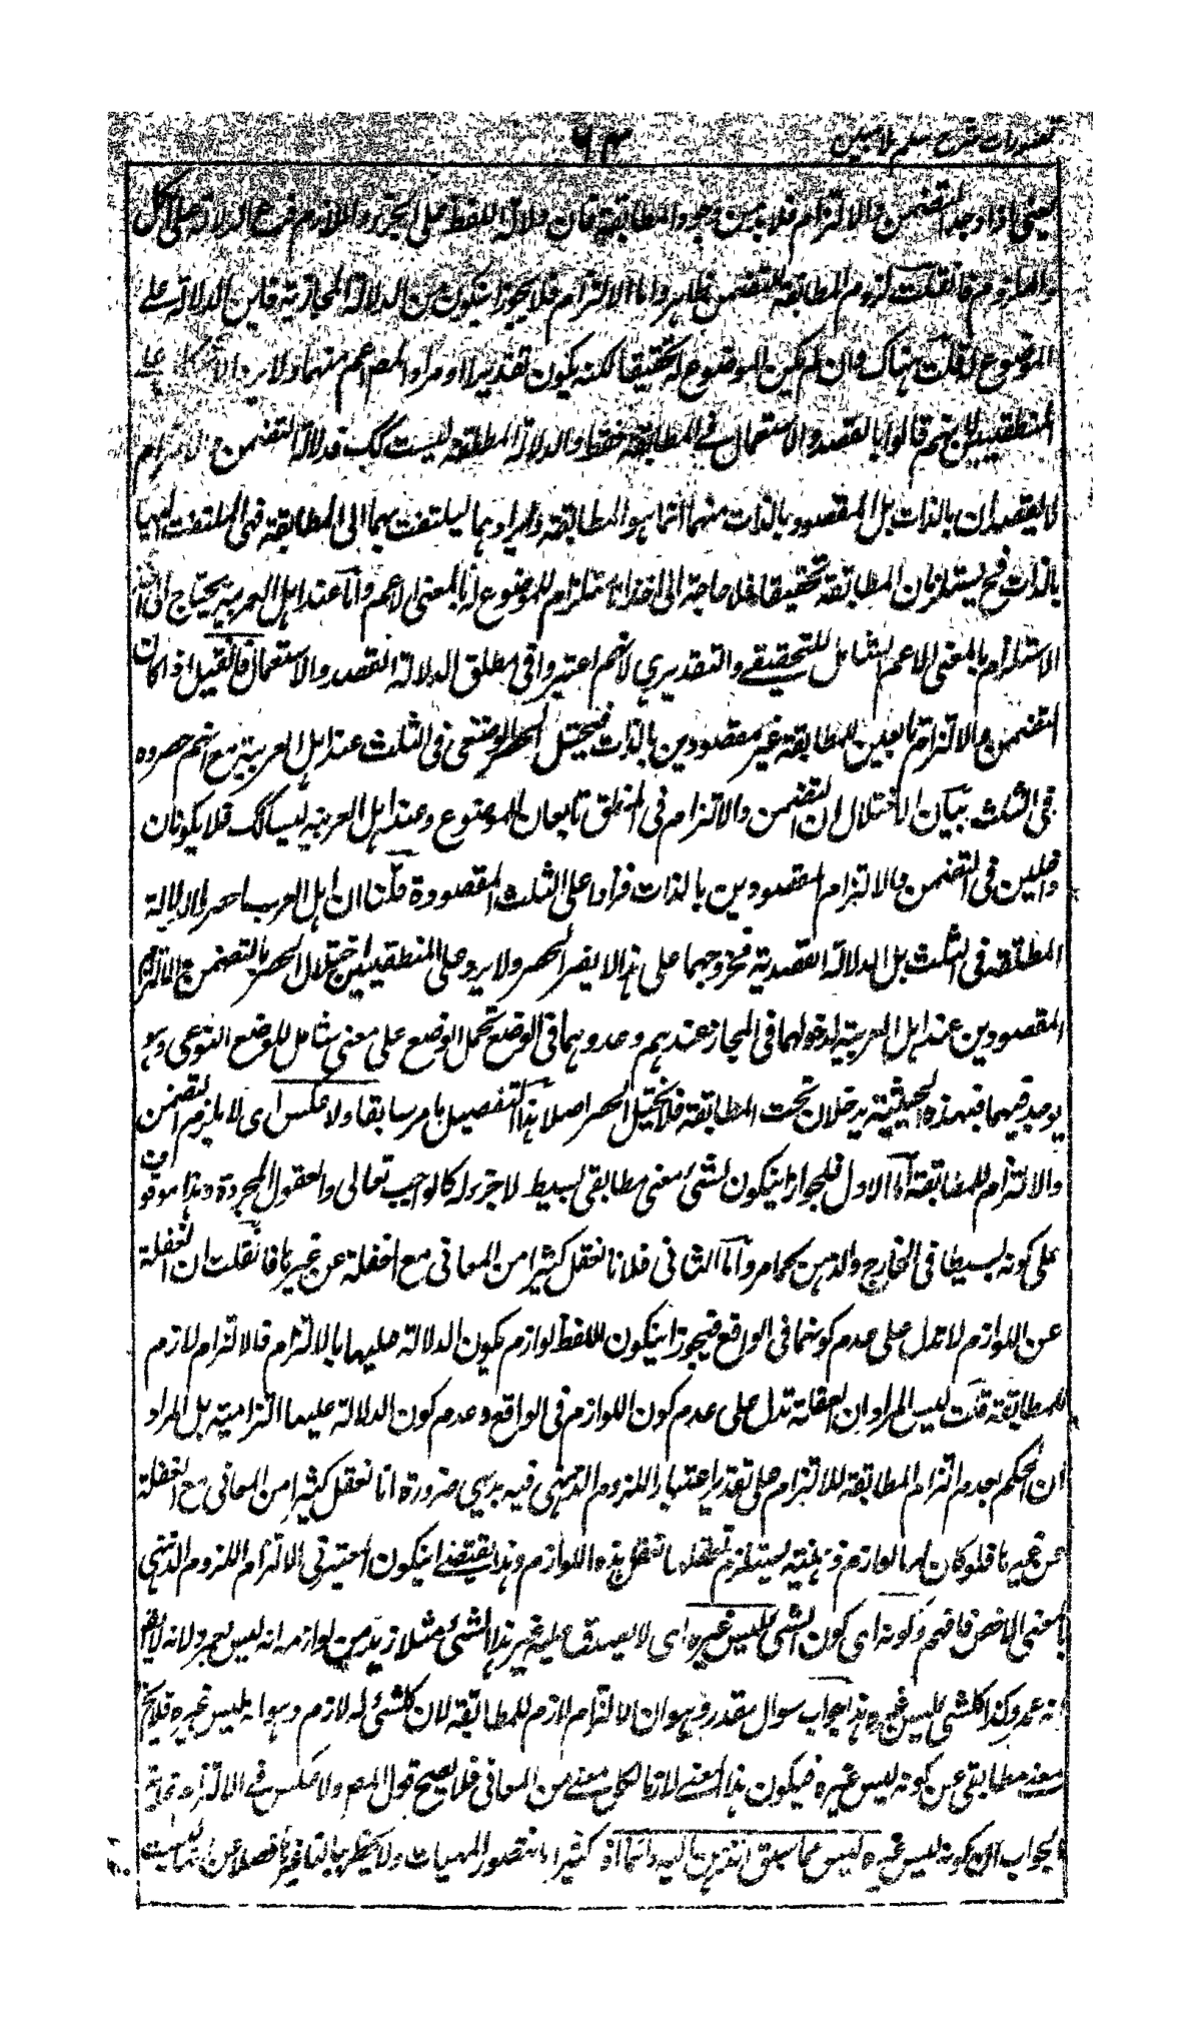 تصورات شرح سلم ملا مبین
۶۳
یعنی اذا وجد التضمن والالتزام فلا بد من وجود المطابقة فان دلالة اللفظ علی الجزء واللازم فرع الدلالة علی الکل
والملزوم فانقلت لزوم المطابقة للتضمن ظاہر واما الالتزام فلا یجوز اینکون من الدلالة المجازیة فاین الدلالة علے
الموضوع له قلت ہناک وان لم یکن الموضوع له تحقیقا لکنه یکون تقدیرا ومراد المصـ اعم منهما ولا یرد علے
المنطقیین لانہم قالوا بالقصد والاستعمال فے المطابقة فقط والدلالة المطلقة لیست کک فدلالة التضمن والالتزام
لا یقصدان بالذات بل المقصود بالذات منهما انما ہو المطابقة وایراد ہما لیلتفت بہما الی المطابقة فہی الملتفت الیہا
بالذات فح یستلزمان المطابقة تحقیقا فلا حاجة الی اخذ استلزام للموضوع له بالمعنی الاعم واما عند اہل العربیة یحتاج الی اخذ
الاستلزام بالمعنی الاعم الشامل للتحقیقے والتقدیری لانہم اعتبروا فی مطلق الدلالة القصد والاستعمال فانقیل اذا کان
التضمن والالتزام تابعین للمطابقة غیر مقصودین بالذات فیختل الحصر الوضعی فی الثلث عند اہل العربیة مع انہم حصروہ
فی الثلث بیان الاختلال ان التضمن والالتزام فی المنطق تابعان للموضوع وعند اہل العربیة لیسا کک فلا یکونان
داخلین فی التضمن والالتزام المقصودین بالذات فزاد علی الثلث المقصودة قلنا ان اہل العرب احصر الدلالة
المطلقة فی الثلث بل الدلالة القصدیة فخروجہما علی ہذا لا یضر الحصر ولا یرد علی المنطقیین اختلال الحصر بالتضمن والالتزام
المقصودین عند اہل العربیة لدخولہما فی المجاز عندہم وعدوہما فی الوضع تحمل الوضع علی معنی شامل للوضع النوعی وہو
یوجد فیہما فبہذہ الحیثیة یدخلان تحت المطابقة فلا یختل الحصر اصلا ہذا التفصیل ما مر سابقا ولا عکس ای لا یلزم التضمن
والالتزام للمطابقة اما الاول فلجواز اینکون لشئ معنی مطابقی بسیط لا جزء له کالواجب تعالی والعقول المجردة وہذا موقوف
علی کونه بسیطا فی الخارج والذہن کما مر واما الثانی فلانا نعقل کثیرا من المعانی مع الغفلة عن غیرہا فانقلت ان الغفلة
عن اللوازم لا تدل علی عدم کونہا فی الواقع فیجوز اینکون اللفظ لوازم یکون الدلالة علیها بالالتزام فالالتزام لازم
للمطابقة قلت لیس المراد ان الغفلة تدل علی عدم کون اللوازم فی الواقع وعدم کون الدلالة علیہا التزامیة بل المراد
ان الحکم بعدم التزام المطابقة للالتزام علی تقدیر اعتبار اللزوم الذہنی فیه بدیہی ضرورة انا نعقل کثیرا من المعانی مع الغفلة
عن غیرہا فلو کان لہا لوازم ذہنیة یستلزم تعقلہا تعقل ہذہ اللوازم وہذا یقتضے اینکون المعتبر فی الالتزام اللزوم الذہنی
بالمعنی الاخص فافہم وکونه ای کون الشئ لیس غیرہ ای لا یصدق علیه غیر ہذا الشئ مثلا زید من لوازمه انه لیس بعمرو لانه لا
انه عمرو وکذا کل شئ لیس غیرہ ہذا جواب سوال مقدر وہو ان الالتزام لازم للمطابقة لان کل شئ له لازم وہو انه لیس غیرہ فلا یخ
معنے مطابقی عن کونه لیس غیرہ فیکون ہذا المعنے لازما لکل معنے من المعانی فلا یصح قول المصـ ولا عکس فے الالتزام
الجواب ان کونه لیس غیرہ لیس مما یسبق الذہن الیه دائما اذ کثیرا ما نتصور المہیات ولا یخطر بالبال غیرہا فضلا عن انہا لیست